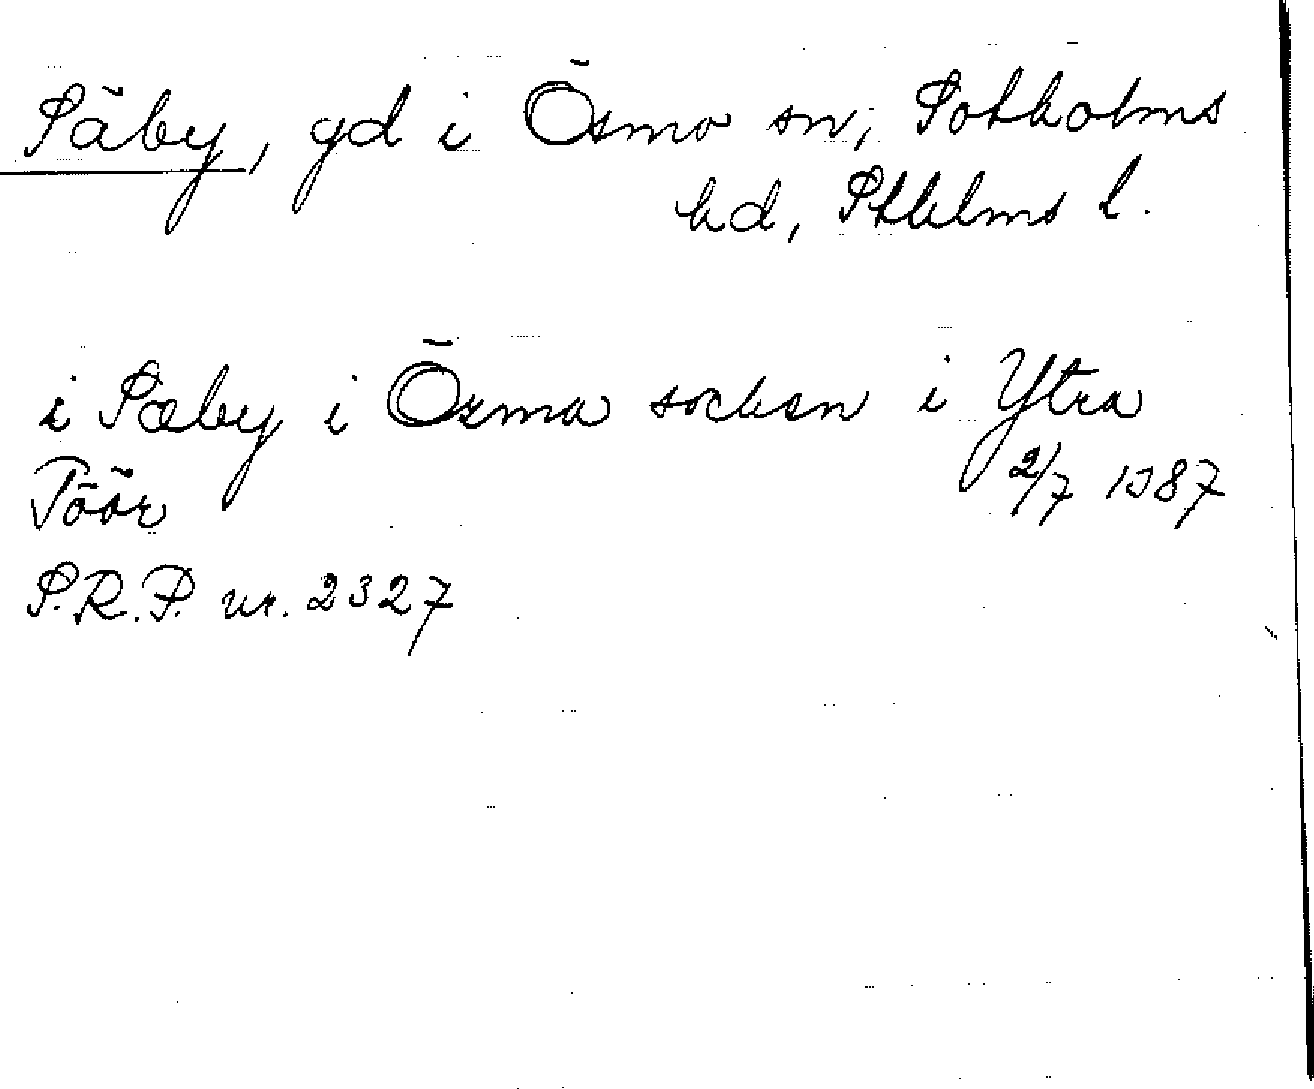 Säby, gd i Ösmo sn, Sotholms
hd, Sthlms l.
i Sæby i Ösma socken i Ytra
Töör 2/7 1387
S.R.P. nr. 2327